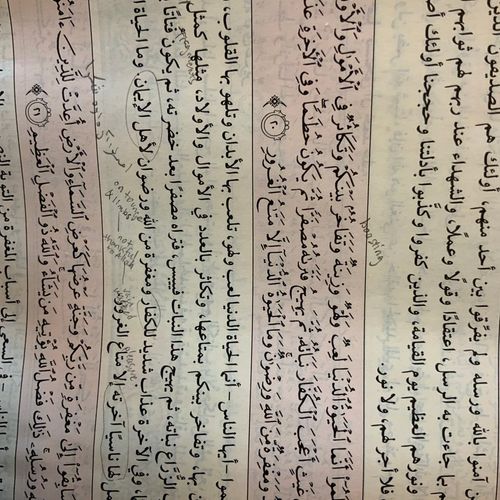 آمنوا بالله ورسله ولم يفرقوا بين أحد منهم، أولئك هم الصديقون الذين
بما جاءت به الرسل، اعتقادًا وقولًا وعملًا، والشهداء عند ربهم لهم ثوابهم
نورهم العظيم يوم القيامة، والذين كفروا وكذبوا بأدلتنا وحججنا أولئك
فلا أجر لهم، ولا نور.
boasting
ٱعْلَمُوٓا۟ أَنَّمَا ٱلْحَيَوٰةُ ٱلدُّنْيَا لَعِبٌ وَلَهْوٌ وَزِينَةٌ وَتَفَاخُرٌۢ بَيْنَكُمْ وَتَكَاثُرٌ فِى ٱلْأَمْوَٰلِ وَٱلْأَوْ
غَيْثٍ أَعْجَبَ ٱلْكُفَّارَ نَبَاتُهُۥ ثُمَّ يَهِيجُ فَتَرَىٰهُ مُصْفَرًّا ثُمَّ يَكُونُ حُطَٰمًا وَفِى ٱلْءَاخِرَةِ
وَمَغْفِرَةٌ مِّنَ ٱللَّهِ وَرِضْوَٰنٌ وَمَا ٱلْحَيَوٰةُ ٱلدُّنْيَآ إِلَّا مَتَٰعُ ٱلْغُرُورِ ٢٠
علموا -أيها الناس- أنما الحياة الدنيا لعب ولهو، تلعب بها الأبدان وتلهو بها القلوب،
بها، وتفاخر بينكم بمتاعها، وتكاثر بالعدد في الأموال والأولاد، مثلها كمثل
الزُّراع نباته، ثم يهيج هذا النبات فييبس، فتراه مصفرًّا بعد خضرته، ثم يكون فتاتًا
وفي الآخرة عذاب شديد للكفار ومغفرة من الله ورضوان لأهل الإيمان. وما الحياة
لها ناسيًا آخرته إلا متاع الغرور
on toungue
& limbs
سَابِقُوٓا۟ إِلَىٰ مَغْفِرَةٍ مِّن رَّبِّكُمْ وَجَنَّةٍ عَرْضُهَا كَعَرْضِ ٱلسَّمَآءِ وَٱلْأَرْضِ أُعِدَّتْ لِلَّذِينَ ءَامَنُو
وَرُسُلِهِۦ ذَٰلِكَ فَضْلُ ٱللَّهِ يُؤْتِيهِ مَن يَشَآءُ وَٱللَّهُ ذُو ٱلْفَضْلِ ٱلْعَظِيمِ ٢١
في السعي إلى أسباب المغفرة من التوبة